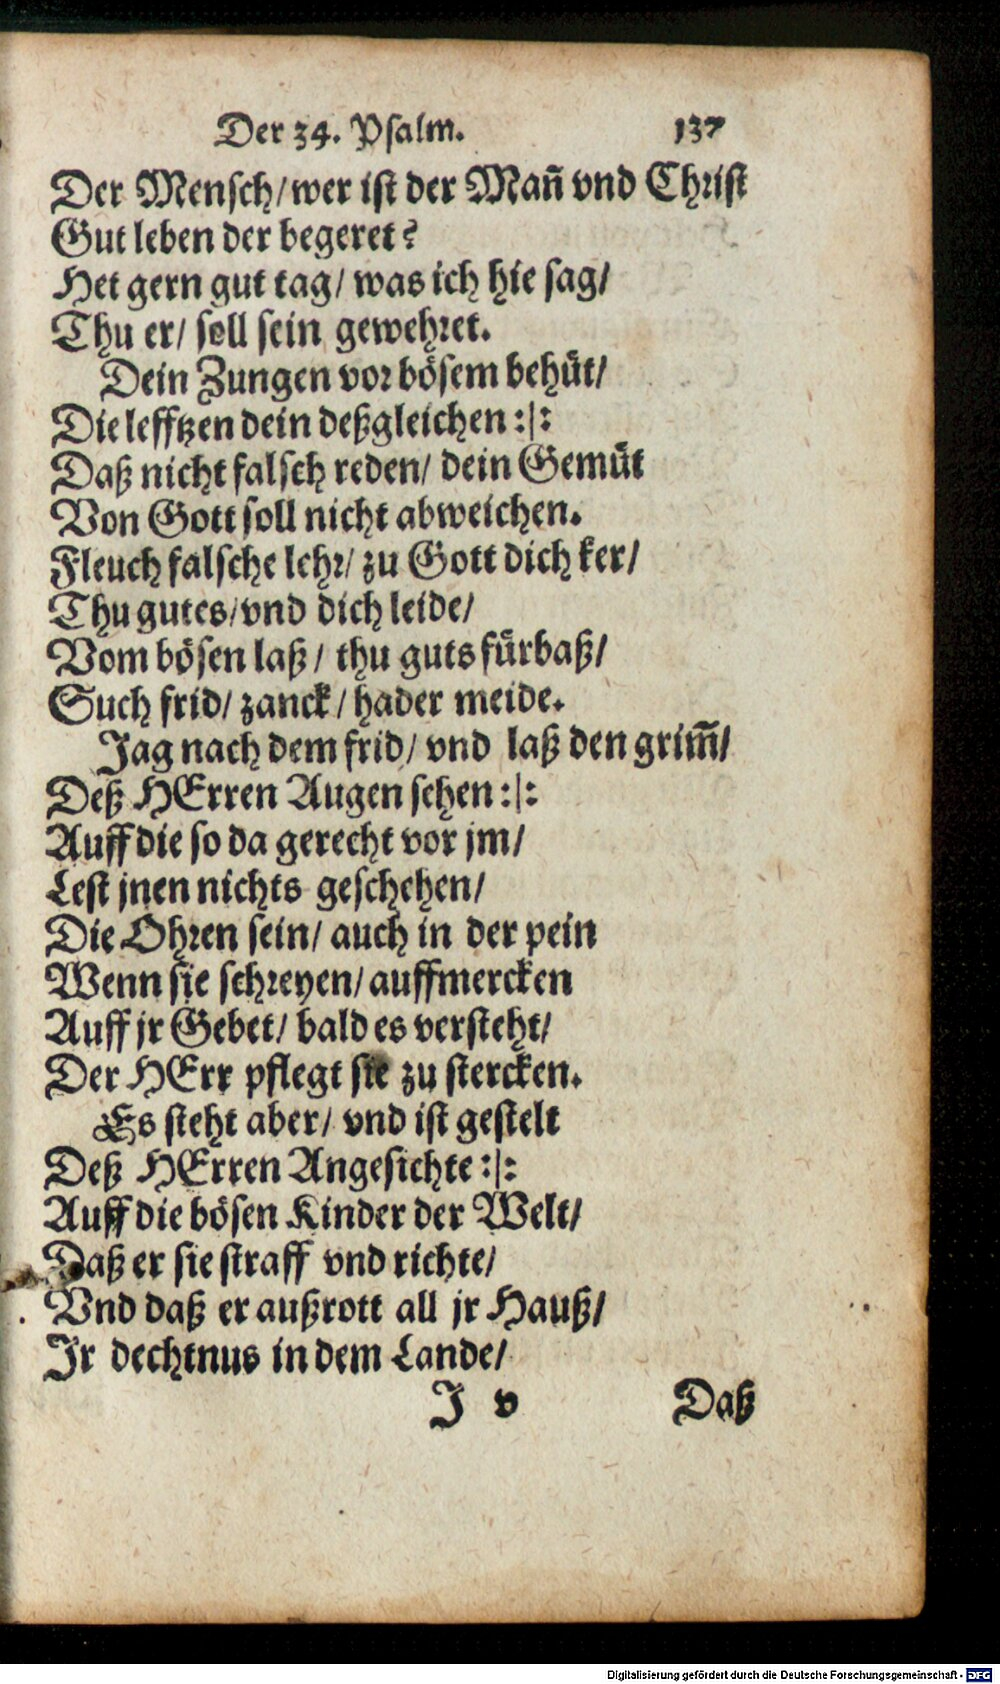 Der 34. Psalm. 137
Der Mensch/ wer ist der Mañ vnd Christ
Gut leben der begeret?
Het gern gut tag/ was ich hie sag/
Thu er/ soll sein gewehret.
Dein Zungen vor bösem behüt/
Die lefftzen dein deßgleichen :|:
Daß nicht falsch reden/ dein Gemüt
Von Gott soll nicht abweichen.
Fleuch falsche lehr/ zu Gott dich ker/
Thu gutes/ vnd dich leide/
Vom bösen laß/ thu guts fürbaß/
Such frid/ zanck/ hader meide.
Jag nach dem frid/ vnd laß den grim̃/
Deß HErren Augen sehen :|:
Auff die so da gerecht vor jm/
Lest jnen nichts geschehen/
Die Ohren sein/ auch in der pein
Wenn sie schreyen/ auffmercken
Auff jr Gebet/ bald es versteht/
Der HErr pflegt sie zu stercken.
Es steht aber/ vnd ist gestelt
Deß HErren Angesichte :|:
Auff die bösen Kinder der Welt/
Daß er sie straff vnd richte/
Vnd daß er außrott all jr Hauß/
Jr dechtnus in dem Lande/
J v Daß
Digitalisierung gefördert durch die Deutsche Forschungsgemeinschaft - DFG